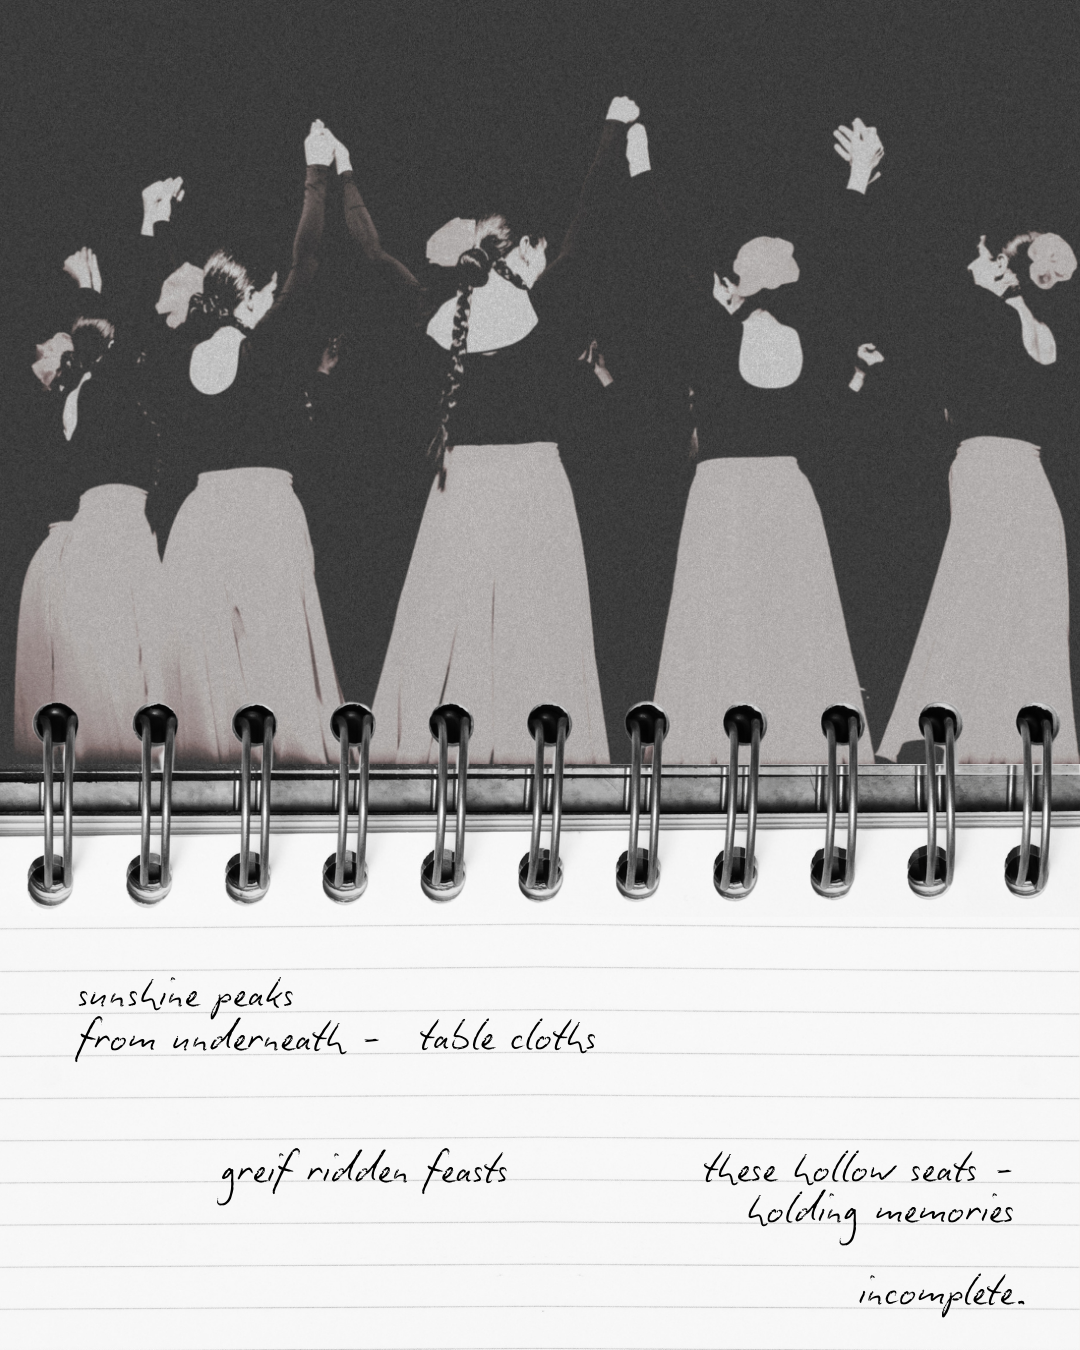 sunshine peaks
from underneath - table cloths
greif ridden feasts
these hollow seats -
holding memories
incomplete.